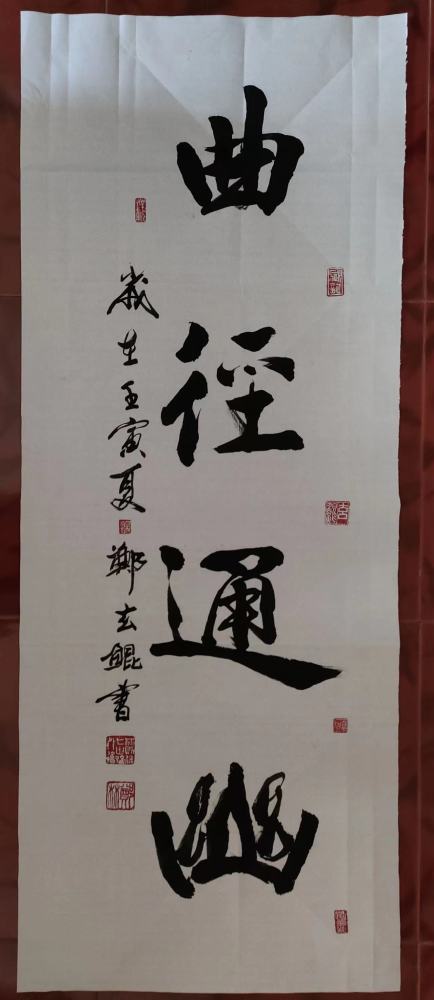 曲徑通幽
歲在壬寅夏
鄭玄鯤書